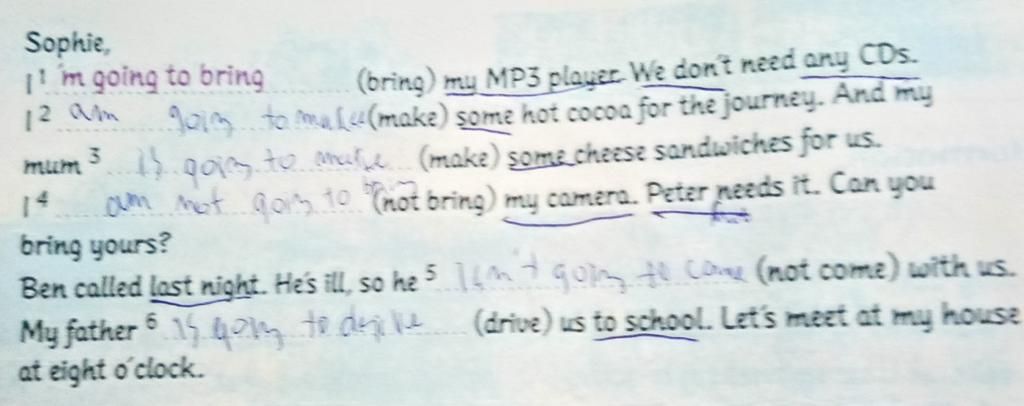 Sophie,
I ¹ 'm going to bring (bring) my MP3 player. We don't need any CDs.
I ² am going to make (make) some hot cocoa for the journey. And my
mum ³ is going to make (make) some cheese sandwiches for us.
I ⁴ am not going to bring (not bring) my camera. Peter needs it. Can you
bring yours?
Ben called last night. He's ill, so he ⁵ isn't going to come (not come) with us.
My father ⁶ is going to drive (drive) us to school. Let's meet at my house
at eight o'clock.